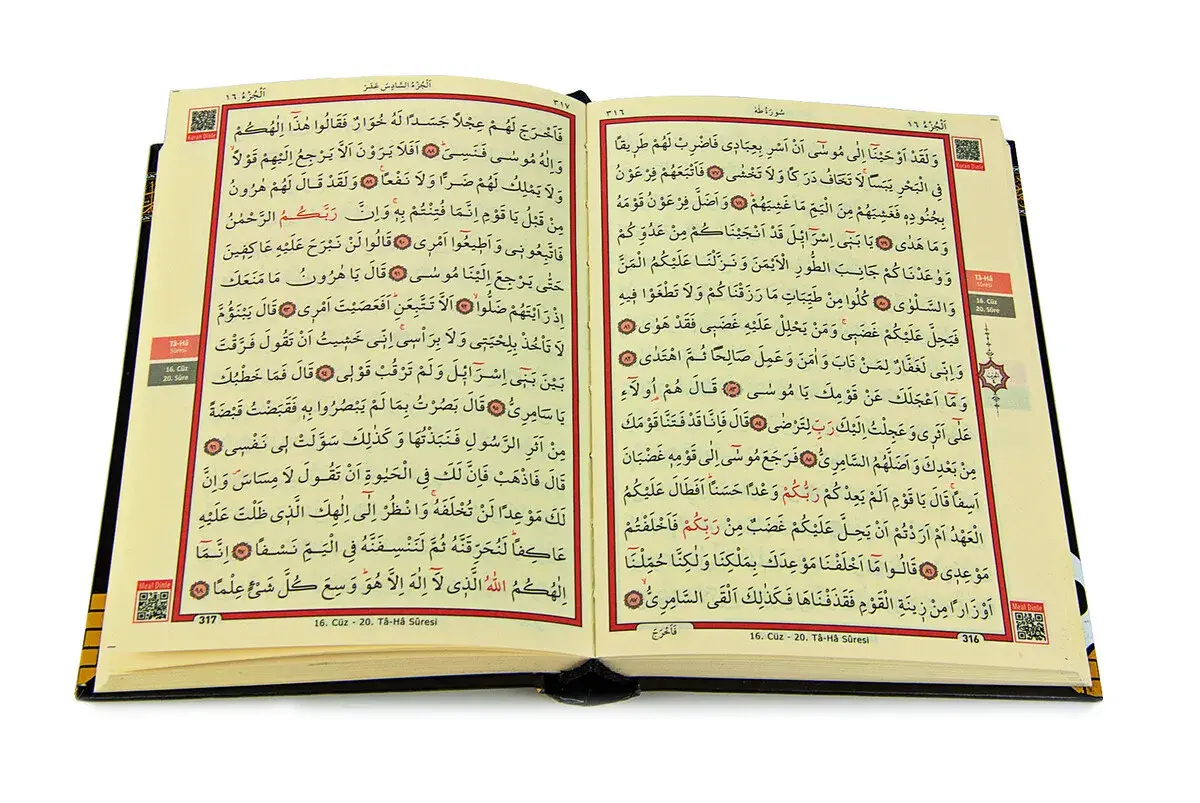 ٣١٦
سُورَةُ طٰهٰ
اَلْجُزْءُ ١٦
Kuran Dinle
وَلَقَدْ اَوْحَيْنَٓا اِلٰى مُوسٰٓى اَنْ اَسْرِ بِعِبَادٖى فَاضْرِبْ لَهُمْ طَرٖيقًا
فِى الْبَحْرِ يَبَسًاۙ لَا تَخَافُ دَرَكًا وَلَا تَخْشٰى ﴿٧٧﴾ فَاَتْبَعَهُمْ فِرْعَوْنُ
بِجُنُودِهٖ فَغَشِيَهُمْ مِنَ الْيَمِّ مَا غَشِيَهُمْؕ ﴿٧٨﴾ وَاَضَلَّ فِرْعَوْنُ قَوْمَهُ
وَمَا هَدٰى ﴿٧٩﴾ يَا بَنٖٓى اِسْرَٓائٖلَ قَدْ اَنْجَيْنَاكُمْ مِنْ عَدُوِّكُمْ
وَوٰعَدْنَاكُمْ جَانِبَ الطُّورِ الْاَيْمَنَ وَنَزَّلْنَا عَلَيْكُمُ الْمَنَّ
وَالسَّلْوٰى ﴿٨٠﴾ كُلُوا مِنْ طَيِّبَاتِ مَا رَزَقْنَاكُمْ وَلَا تَطْغَوْا فٖيهِ
فَيَحِلَّ عَلَيْكُمْ غَضَبٖىۚ وَمَنْ يَحْلِلْ عَلَيْهِ غَضَبٖى فَقَدْ هَوٰى ﴿٨١﴾
وَاِنّٖى لَغَفَّارٌ لِمَنْ تَابَ وَاٰمَنَ وَعَمِلَ صَالِحًا ثُمَّ اهْتَدٰى ﴿٨٢﴾
وَمَٓا اَعْجَلَكَ عَنْ قَوْمِكَ يَا مُوسٰى ﴿٨٣﴾ قَالَ هُمْ اُو۬لَٓاءِ
عَلٰٓى اَثَرٖى وَعَجِلْتُ اِلَيْكَ رَبِّ لِتَرْضٰى ﴿٨٤﴾ قَالَ فَاِنَّا قَدْ فَتَنَّا قَوْمَكَ
مِنْ بَعْدِكَ وَاَضَلَّهُمُ السَّامِرِىُّ ﴿٨٥﴾ فَرَجَعَ مُوسٰٓى اِلٰى قَوْمِهٖ غَضْبَانَ
اَسِفًاۚ قَالَ يَا قَوْمِ اَلَمْ يَعِدْكُمْ رَبُّكُمْ وَعْدًا حَسَنًاؕ اَفَطَالَ عَلَيْكُمُ
الْعَهْدُ اَمْ اَرَدْتُمْ اَنْ يَحِلَّ عَلَيْكُمْ غَضَبٌ مِنْ رَبِّكُمْ فَاَخْلَفْتُمْ
مَوْعِدٖى ﴿٨٦﴾ قَالُوا مَٓا اَخْلَفْنَا مَوْعِدَكَ بِمَلْكِنَا وَلٰكِنَّا حُمِّلْنَٓا
اَوْزَارًا مِنْ زٖينَةِ الْقَوْمِ فَقَذَفْنَاهَا فَكَذٰلِكَ اَلْقَى السَّامِرِىُّۙ ﴿٨٧﴾
Tâ-Hâ
Sûresi
16. Cüz
20. Sûre
Meal Dinle
فَاَخْرَجَ
16. Cüz - 20. Tâ-Hâ Sûresi
316
٣١٧
اَلْجُزْءُ السَّادِسَ عَشَرَ
اَلْجُزْءُ ١٦
Kuran Dinle
فَاَخْرَجَ لَهُمْ عِجْلًا جَسَدًا لَهُ خُوَارٌ فَقَالُوا هٰذَٓا اِلٰهُكُمْ
وَاِلٰهُ مُوسٰى فَنَسِىَؕ ﴿٨٨﴾ اَفَلَا يَرَوْنَ اَلَّا يَرْجِعُ اِلَيْهِمْ قَوْلًاۙ
وَلَا يَمْلِكُ لَهُمْ ضَرًّا وَلَا نَفْعًا۟ ﴿٨٩﴾ وَلَقَدْ قَالَ لَهُمْ هٰرُونُ
مِنْ قَبْلُ يَا قَوْمِ اِنَّمَا فُتِنْتُمْ بِهٖۚ وَاِنَّ رَبَّكُمُ الرَّحْمٰنُ
فَاتَّبِعُونٖى وَاَطٖيعُٓوا اَمْرٖى ﴿٩٠﴾ قَالُوا لَنْ نَبْرَحَ عَلَيْهِ عَاكِفٖينَ
حَتّٰى يَرْجِعَ اِلَيْنَا مُوسٰى ﴿٩١﴾ قَالَ يَا هٰرُونُ مَا مَنَعَكَ
اِذْ رَاَيْتَهُمْ ضَلُّواۙ ﴿٩٢﴾ اَلَّا تَتَّبِعَنِؕ اَفَعَصَيْتَ اَمْرٖى ﴿٩٣﴾ قَالَ يَبْنَؤُمَّ
لَا تَأْخُذْ بِلِحْيَتٖى وَلَا بِرَأْسٖىۚ اِنّٖى خَشٖيتُ اَنْ تَقُولَ فَرَّقْتَ
بَيْنَ بَنٖٓى اِسْرَٓائٖلَ وَلَمْ تَرْقُبْ قَوْلٖى ﴿٩٤﴾ قَالَ فَمَا خَطْبُكَ
يَا سَامِرِىُّ ﴿٩٥﴾ قَالَ بَصُرْتُ بِمَا لَمْ يَبْصُرُوا بِهٖ فَقَبَضْتُ قَبْضَةً
مِنْ اَثَرِ الرَّسُولِ فَنَبَذْتُهَا وَكَذٰلِكَ سَوَّلَتْ لٖى نَفْسٖى ﴿٩٦﴾
قَالَ فَاذْهَبْ فَاِنَّ لَكَ فِى الْحَيٰوةِ اَنْ تَقُولَ لَا مِسَاسَ وَاِنَّ
لَكَ مَوْعِدًا لَنْ تُخْلَفَهُۚ وَانْظُرْ اِلٰٓى اِلٰهِكَ الَّذٖى ظَلْتَ عَلَيْهِ
عَاكِفًاؕ لَنُحَرِّقَنَّهُ ثُمَّ لَنَنْسِفَنَّهُ فِى الْيَمِّ نَسْفًا ﴿٩٧﴾ اِنَّمَٓا
اِلٰهُكُمُ اللّٰهُ الَّذٖى لَٓا اِلٰهَ اِلَّا هُوَؕ وَسِعَ كُلَّ شَىْءٍ عِلْمًا ﴿٩٨﴾
Tâ-Hâ
Sûresi
16. Cüz
20. Sûre
Meal Dinle
317
16. Cüz - 20. Tâ-Hâ Sûresi